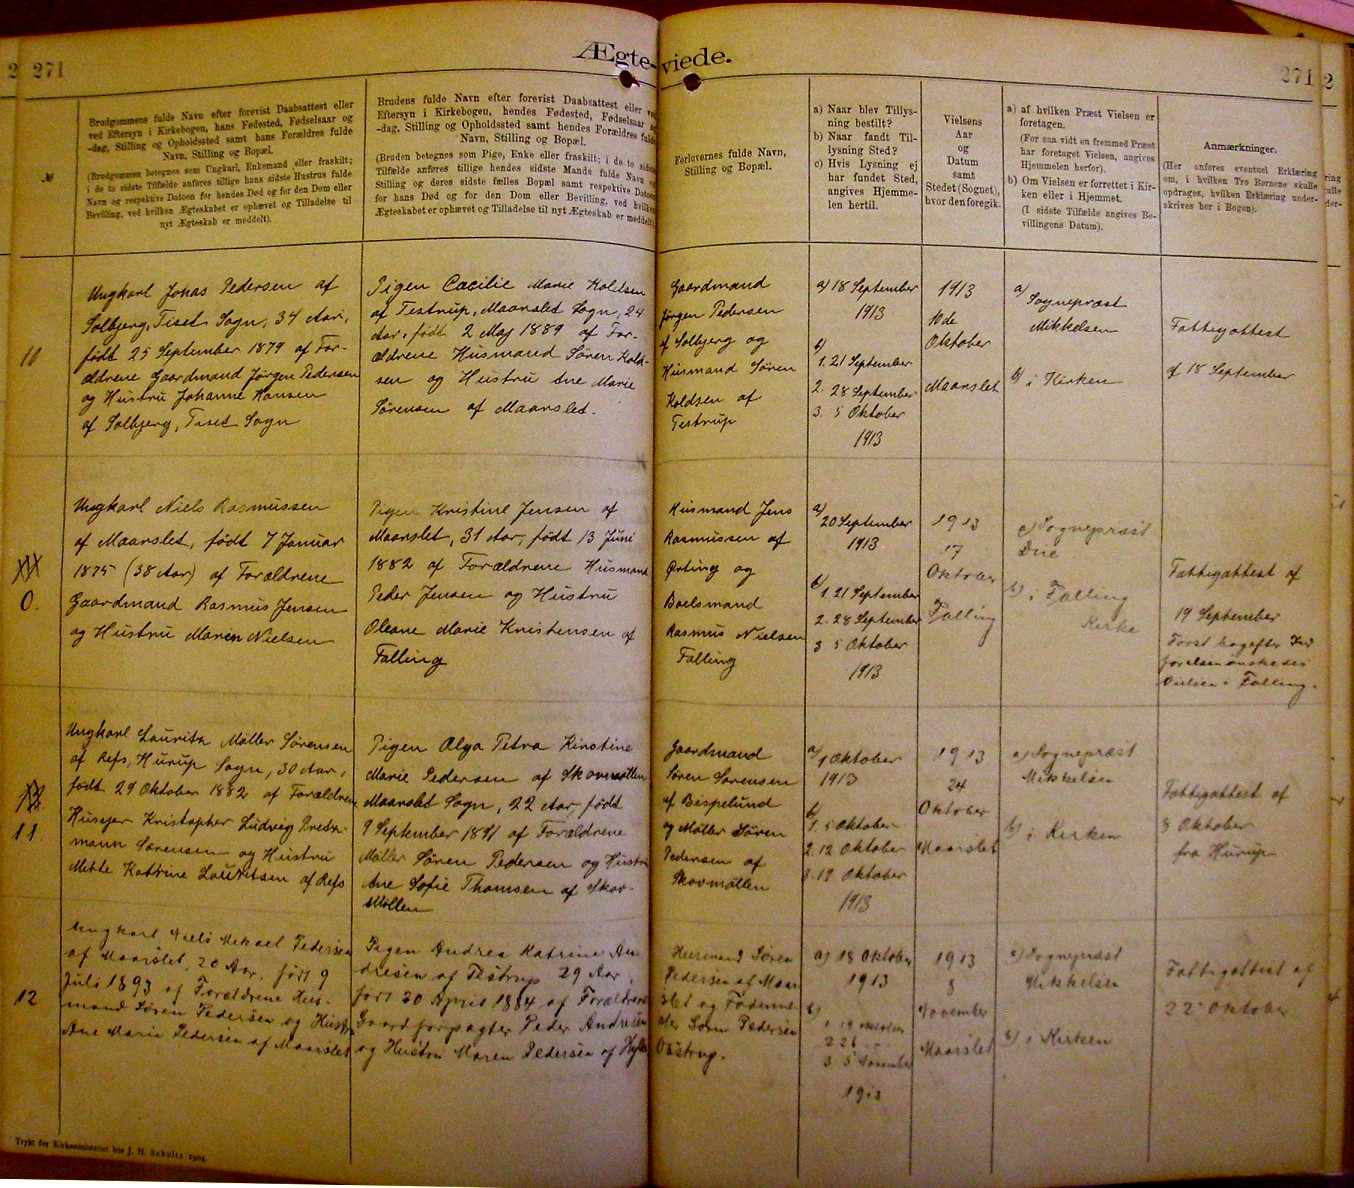 Ægte-viede.
2 271
271 2
№
Brudgommens fulde Navn efter forevist Daabsattest eller
ved Eftersyn i Kirkebogen, hans Fødested, Fødselsaar og
-dag, Stilling og Opholdssted samt hans Forældres fulde
Navn, Stilling og Bopæl.
(Brudgommen betegnes som Ungkarl, Enkemand eller fraskilt;
i de to sidste Tilfælde anføres tillige hans sidste Hustrus fulde
Navn og respektive Datoen for hendes Død og for den Dom eller
Bevilling, ved hvilken Ægteskabet er ophævet og Tilladelse til
nyt Ægteskab er meddelt).
Brudens fulde Navn efter forevist Daabsattest eller ved
Eftersyn i Kirkebogen, hendes Fødested, Fødselsaar og
-dag, Stilling og Opholdssted samt hendes Forældres fulde
Navn, Stilling og Bopæl.
(Bruden betegnes som Pige, Enke eller fraskilt; i de to sidste
Tilfælde anføres tillige hendes sidste Mands fulde Navn og
Stilling og deres sidste fælles Bopæl samt respektive Datoen
for hans Død og for den Dom eller Bevilling, ved hvilken
Ægteskabet er ophævet og Tilladelse til nyt Ægteskab er meddelt).
Forlovernes fulde Navn,
Stilling og Bopæl.
a) Naar blev Tillys-
ning bestilt?
b) Naar fandt Til-
lysning Sted?
c) Hvis Lysning ej
har fundet Sted,
angives Hjemme-
len hertil.
Vielsens
Aar
og
Datum
samt
Stedet (Sognet),
hvor den foregik.
a) af hvilken Præst Vielsen er
foretagen.
(For saa vidt en fremmed Præst
har foretaget Vielsen, angives
Hjemmelen herfor).
b) Om Vielsen er forrettet i Kir-
ken eller i Hjemmet.
(I sidste Tilfælde angives Be-
villingens Datum).
Anmærkninger.
(Her anføres eventuel Erklæring
om, i hvilken Tro Børnene skulle
opdrages, hvilken Erklæring under-
skrives her i Bogen).
10
Ungkarl Johas Pedersen af
Solbjerg, Tiset Sogn, 34 Aar,
født 25 September 1879 af For-
ældrene Gaardmand Jørgen Pedersen
og Hustru Johanne Hansen
af Solbjerg, Tiset Sogn
Pigen Cæcilie Marie Koldsen
af Testrup, Maarslet Sogn, 24
Aar, født 2 Maj 1889 af For-
ældrene Husmand Søren Kold-
sen og Hustru Ane Marie
Sørensen af Maarslet.
Gaardmand
Jørgen Pedersen
af Solbjerg og
Husmand Søren
Koldsen af
Testrup
a) 18 September
1913
b)
1. 21 September
2. 28 September
3. 5 Oktober
1913
1913
10de
Oktober
Maarslet
a)
Sognepræst
Mikkelsen
b) i Kirken
Fattigattest
af 18 September
0.
Ungkarl Niels Rasmussen
af Maarslet, født 7 Januar
1875 (38 Aar) af Forældrene
Gaardmand Rasmus Jensen
og Hustru Maren Nielsen
Pigen Kristine Jensen af
Maarslet, 31 Aar, født 13 Juni
1882 af Forældrene Husmand
Peder Jensen og Hustru
Oleane Marie Kristensen af
Falling
Husmand Jens
Rasmussen af
Ørting og
Boelsmand
Rasmus Nielsen
Falling
a)
20 September
1913
b)
1. 21 September
2. 28 September
3 5 Oktober
1913
1913
17
Oktober
Falling
a) Sognepræst
Due
b) i Falling
Kirke
Fattigattest af
19 September
Først bagefter Ind
førelsen ønskedes
Vielsen i Falling.
11
Ungkarl Lauritz Møller Sørensen
af Refs, Hurup Sogn, 30 Aar,
født 29 Oktober 1882 af Forældrene
Husejer Kristopher Ludvig Breds-
mann Sørensen og Hustru
Mette Katrine Lauritsen af Refs
Pigen Olga Petra Kirstine
Marie Pedersen af Skovmøllen
Maarslet Sogn, 22 Aar, født
9 September 1891 af Forældrene
Møller Søren Pedersen og Hustru
Ane Sofie Thomsen af Skov-
Møllen
Gaardmand
Søren Sørensen
af Bispelund
og Møller Søren
Pedersen af
Skovmøllen
a) 1 Oktober
1913
b)
1. 5 Oktober
2. 12 Oktober
3. 19 Oktober
1913
1913
24
Oktober
Maarslet
a) Sognepræst
Mikkelsen
b) i Kirken
Fattigattest af
8 Oktober
fra Hurup
12
Ungkarl Niels Mikael Pedersen
af Maarslet, 20 Aar, født 9
Juli 1893 af Forældrene Hus-
mand Søren Pedersen og Hustru
Ane Marie Pedersen af Maarslet
Pigen Andrea Katrine An-
dresen af Testrup 29 Aar,
født 30 April 1884 af Forældrene
Gaardforpagter Peder Andresen
og Hustru Maren Pedersen af
Husmand Søren
Pedersen af Maar
slet og
Søren Pedersen
a) 18 Oktober
1913
b)
1 19 Oktober
2 26 -
3 5 November
1913
1913
8
November
Maarslet
a) Sognepræst
Mikkelsen
b) i Kirken
Fattigattest af
22 Oktober
Trykt for Kirkeministeriet hos J. H. Schultz 1904.